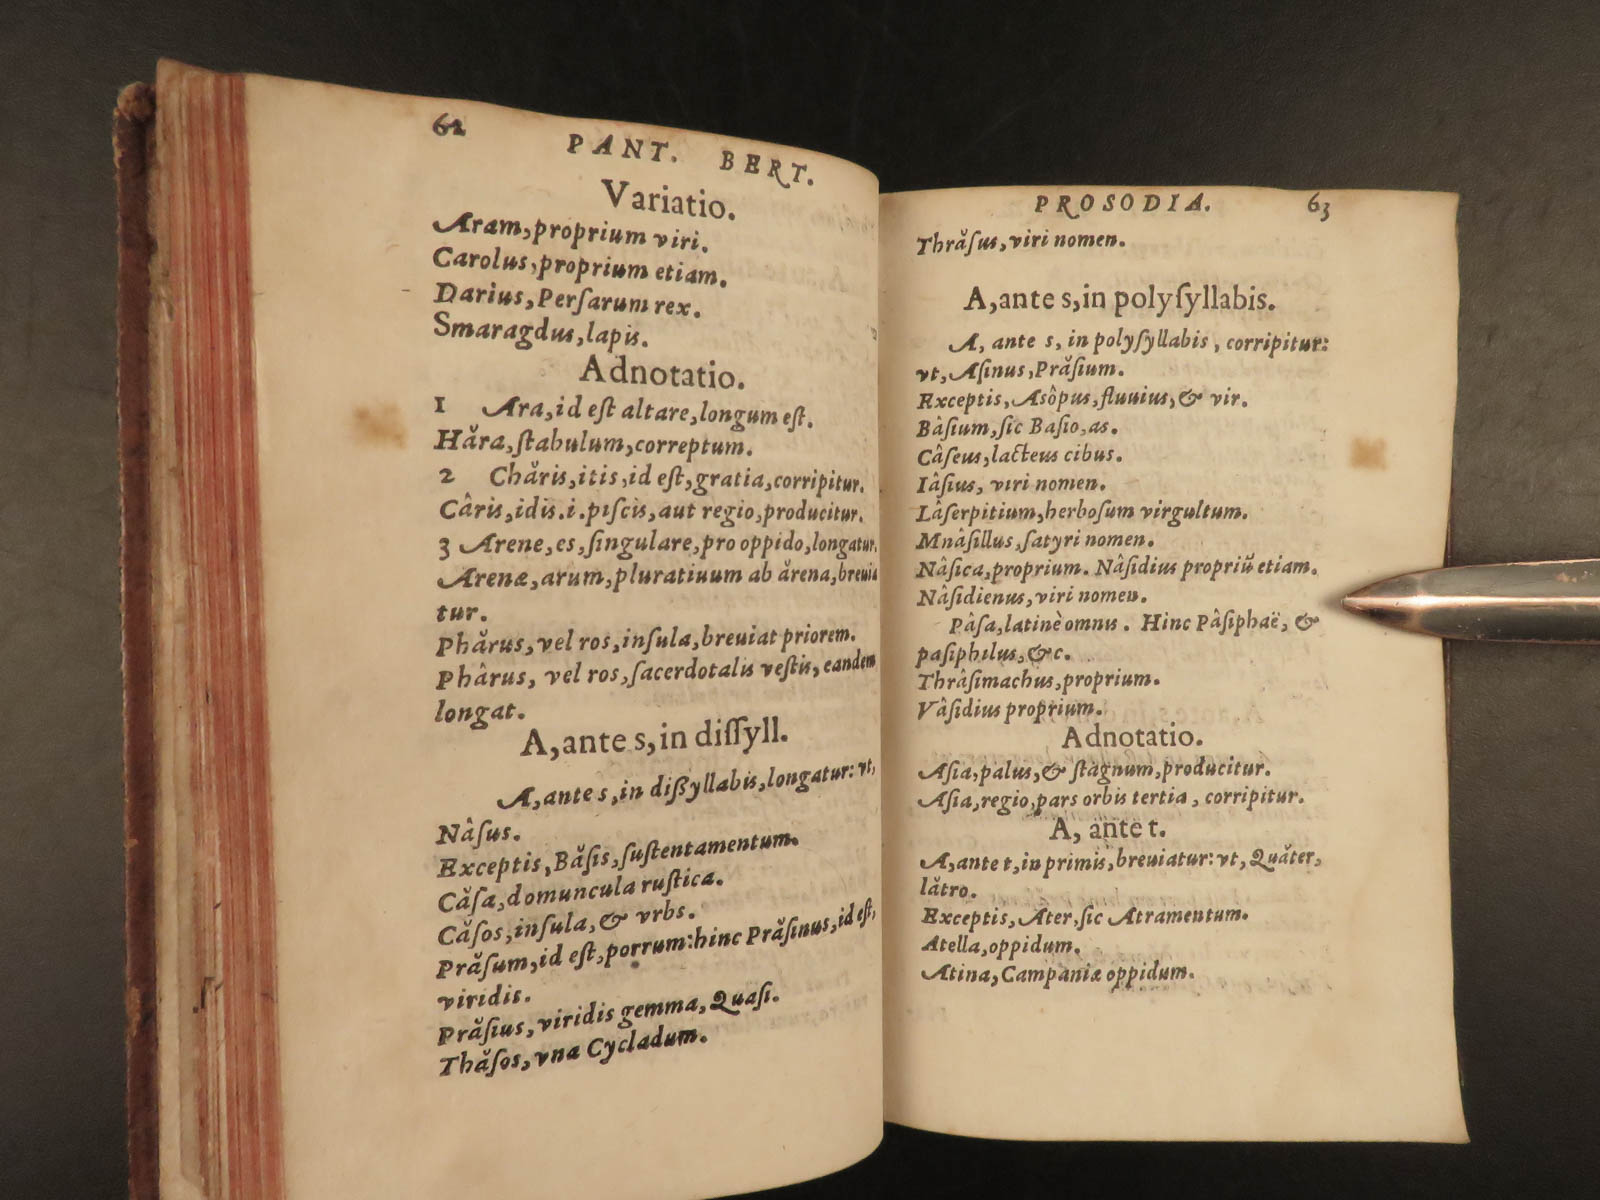 62
PANT. BERT.
Variatio.
Aram, proprium viri.
Carolus, proprium etiam.
Darius, Perſarum rex.
Smaragdus, lapis.
Adnotatio.
1 Ara, id eſt altare, longum eſt.
Hăra, ſtabulum, correptum.
2 Chăris, itis, id eſt, gratia, corripitur.
Câris, idis. i. piſcis, aut regio, producitur.
3 Arene, es, ſingulare, pro oppido, longatur.
Arenæ, arum, pluratiuum ab ărena, breuia
tur.
Phărus, vel ros, inſula, breuiat priorem.
Phârus, vel ros, ſacerdotalis veſtis, eandem
longat.
A, ante s, in diſſyll.
A, ante s, in dißyllabis, longatur: vt,
Nâſus.
Exceptis, Băſis, ſuſtentamentum.
Căſa, domuncula ruſtica.
Căſos, inſula, & vrbs.
Prăſum, id eſt, porrum: hinc Prăſinus, id eſt,
viridis.
Prăſius, viridis gemma, Quaſi.
Thăſos, vna Cycladum.
PROSODIA. 63
Thrăſus, viri nomen.
A, ante s, in polyſyllabis.
A, ante s, in polyſyllabis, corripitur:
vt, Aſinus, Prăſium.
Exceptis, Asôpus, fluuius, & vir.
Bâſium, ſic Baſio, as.
Câſeus, lacteus cibus.
Iâſius, viri nomen.
Lâſerpitium, herboſum virgultum.
Mnâſillus, ſatyri nomen.
Nâſica, proprium. Nâſidius propriũ etiam.
Nâſidienus, viri nomen.
Pâſa, latinè omnis. Hinc Pâſiphaë, &
paſiphilus, &c.
Thrâſimachus, proprium.
Vâſidius proprium.
Adnotatio.
Aſia, palus, & ſtagnum, producitur.
Aſia, regio, pars orbis tertia, corripitur.
A, ante t.
A, ante t, in primis, breuiatur: vt, Quăter,
lătro.
Exceptis, Ater, ſic Atramentum.
Atella, oppidum.
Atina, Campaniæ oppidum.